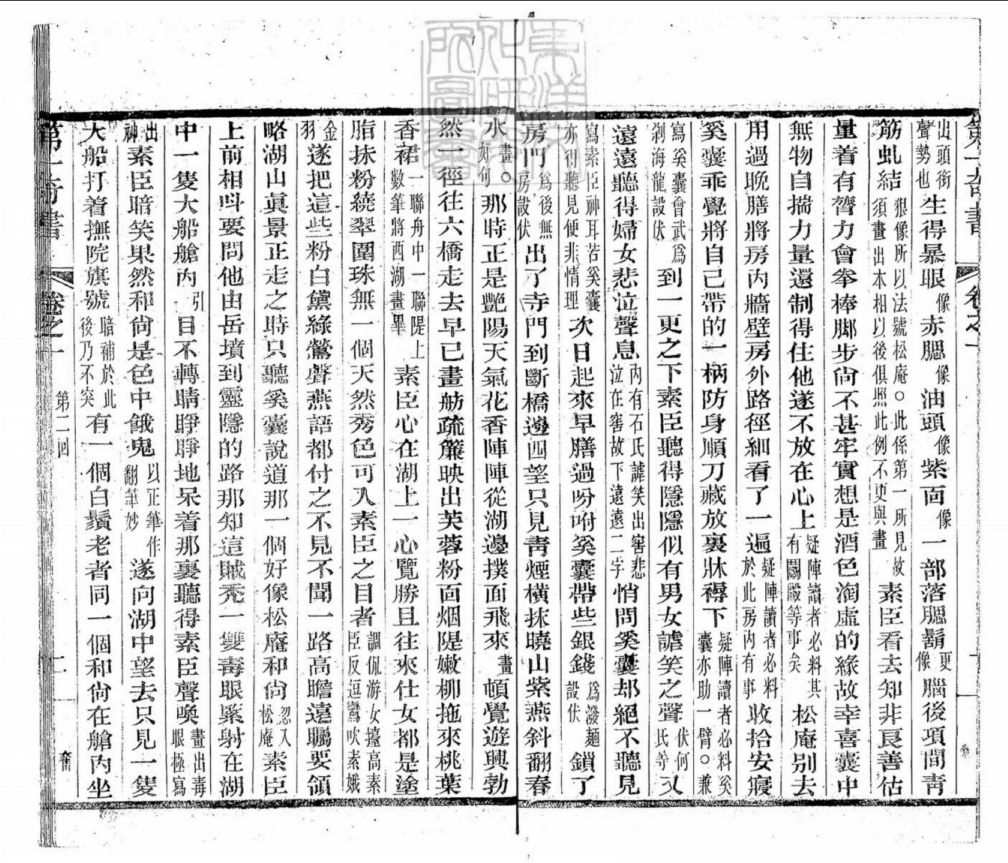 第一奇書
卷之一
出頭銜聲勢也生得暴眼像赤腮像油頭像紫面像一部落腮鬍更像腦後項間青
筋虬結須畫出本相以後俱照此例不更與畫素臣看去知非良善估
量着有膂力會拳棒脚步尙不甚牢實想是酒色淘虛的緣故幸喜囊中
無物自揣力量還制得住他遂不放在心上疑陣讀者必料其有鬭毆等事矣松庵別去
用過晚膳將房內牆壁房外路徑細看了一遍疑陣讀者必料於此房內有事收拾安寢
奚囊乖覺將自己帶的一柄防身順刀藏放裏牀褥下疑陣讀者必料奚囊亦助一臂。兼
寫奚囊會武爲刹海龍設伏到一更之下素臣聽得隱隱似有男女謔笑之聲伏何氏等又
遠遠聽得婦女悲泣聲息內有石氏謔笑出窖悲泣在窖故下遠遠二字悄問奚囊却絕不聽見
寫素臣神耳若奚囊亦得聽見便非情理次日起來早膳過吩咐奚囊帶些銀錢設伏鎖了
房門爲後無房設伏出了寺門到斷橋邊四望只見靑煙橫抹曉山紫燕斜翻春
水畫。那時正是艷陽天氣花香陣陣從湖邊撲面飛來畫頓覺遊興勃
然一徑往六橋走去早已畫舫疏簾映出芙蓉粉面烟隄嫩柳拖來桃葉
香裙一聯舟中一聯隄上數筆將西湖畫畢素臣心在湖上一心覽勝且往來仕女都是塗
脂抹粉繞翠圍珠無一個天然秀色可入素臣之目者調侃游女擡高素臣反逗鸞吹素娥
金羽遂把這些粉白黛綠鶯聲燕語都付之不見不聞一路高瞻遠矚要領
略湖山眞景正走之時只聽奚囊說道那一個好像松庵和尙忽入松庵素臣
上前相呌要問他由岳墳到靈隱的路那知這賊禿一雙毒眼緊射在湖
中一隻大船艙內引目不轉睛睜睜地呆着那裏聽得素臣聲喚畫出毒眼極寫
出神素臣暗笑果然和尙是色中餓鬼以正筆作翻筆妙遂向湖中望去只見一隻
大船打着撫院旗號暗補於此後乃不突有一個白鬚老者同一個和尙在艙內坐
第一奇書
卷之一
第二回